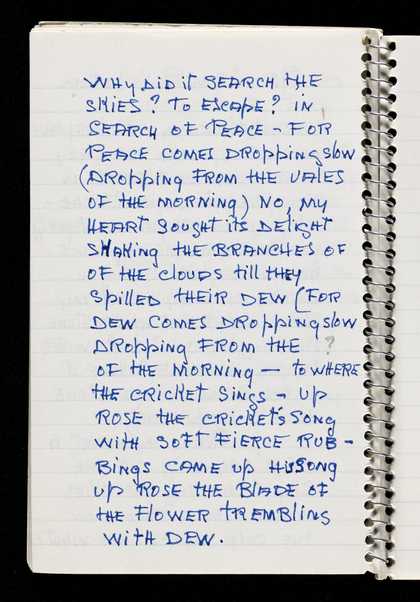 WHY DID it SEARCH THE
SKIES? TO ESCAPE? IN
SEARCH OF PEACE - FOR
PEACE COMES DROPPING SLOW
(DROPPING FROM THE VALES
OF THE MORNING) NO, MY
HEART SOUGHT its DELIGHT
SHAKING THE BRANCHES OF
OF THE CLOUDS till THEY
SPILLED THEIR DEW (FOR
DEW COMES DROPPING SLOW
DROPPING FROM THE ?
OF THE MORNING — to WHERE
THE CRICKET SINGS - UP
ROSE THE CRICKET'S SONG
WITH SOFT FIERCE RUB -
BINGS CAME UP SONG
UP ROSE THE BLADE OF
THE FLOWER TREMBLING
WITH DEW.